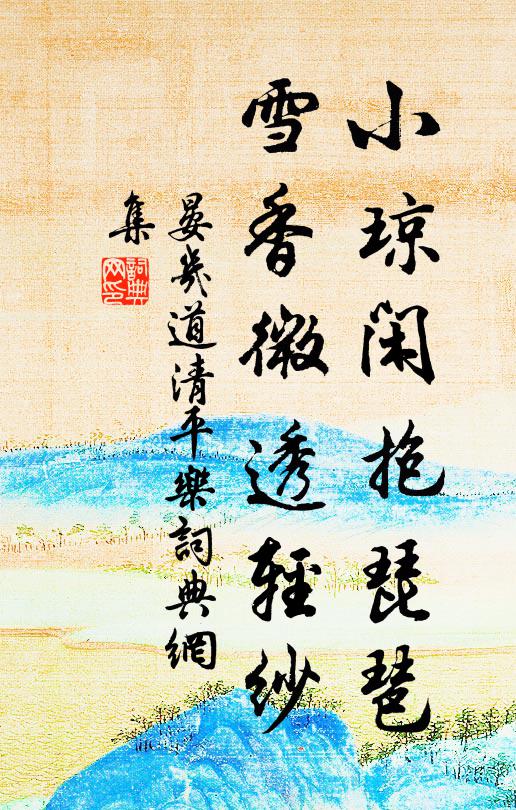 小琼閑抱琵琶
雪香微透輕紗
晏幾道清平樂詞典網
集
詞典網印